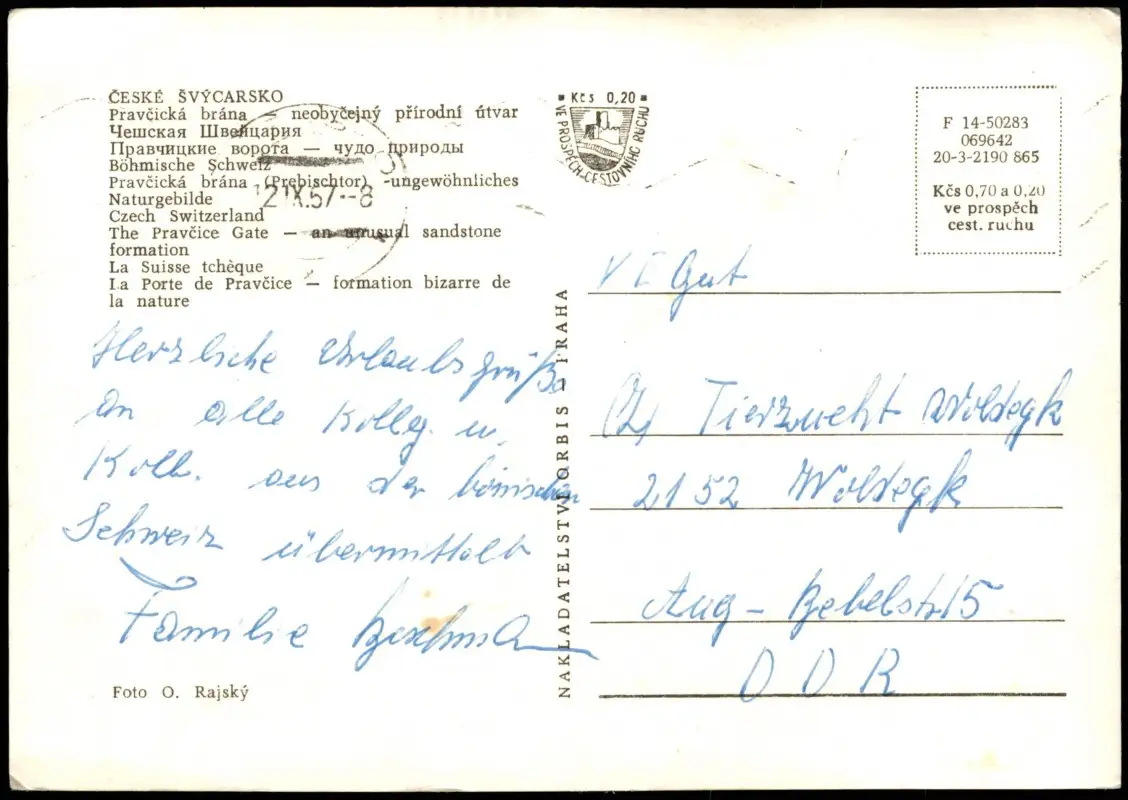 ČESKÉ ŠVÝCARSKO
Pravčická brána — neobyčejný přírodní útvar
Чешская Швейцария
Правчицкие ворота — чудо природы
Böhmische Schweiz
Pravčická brána (Prebischtor) -ungewöhnliches
Naturgebilde
Czech Switzerland
The Pravčice Gate — an unusual sandstone
formation
La Suisse tchèque
La Porte de Pravčice — formation bizarre de
la nature
Herzliche Urlaubsgrüße
an alle Kollg. u.
Koll. aus der bömischen
Schweiz übermittelt
Familie
Foto O. Rajský
NAKLADATELSTVÍ ORBIS — PRAHA
Kčs 0,20
VE PROSPĚCH CESTOVNÍHO RUCHU
F 14-50283
069642
20-3-2190 865
Kčs 0,70 a 0,20
ve prospěch
cest. ruchu
V E Gut
(Z) Tierzucht Woldegk
2152 Woldegk
Aug - Bebelstr 15
DDR